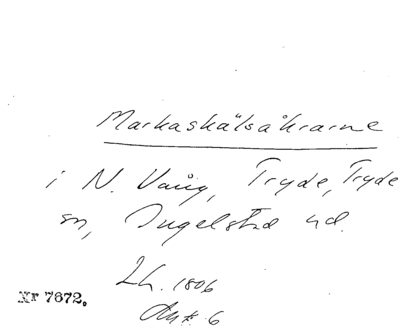 Markaskälsåkrarne
i N. Vång, Tryde, Tryde
sn, Ingelstad hd.
Lh. 1806
Akt 6
Nr 7672.